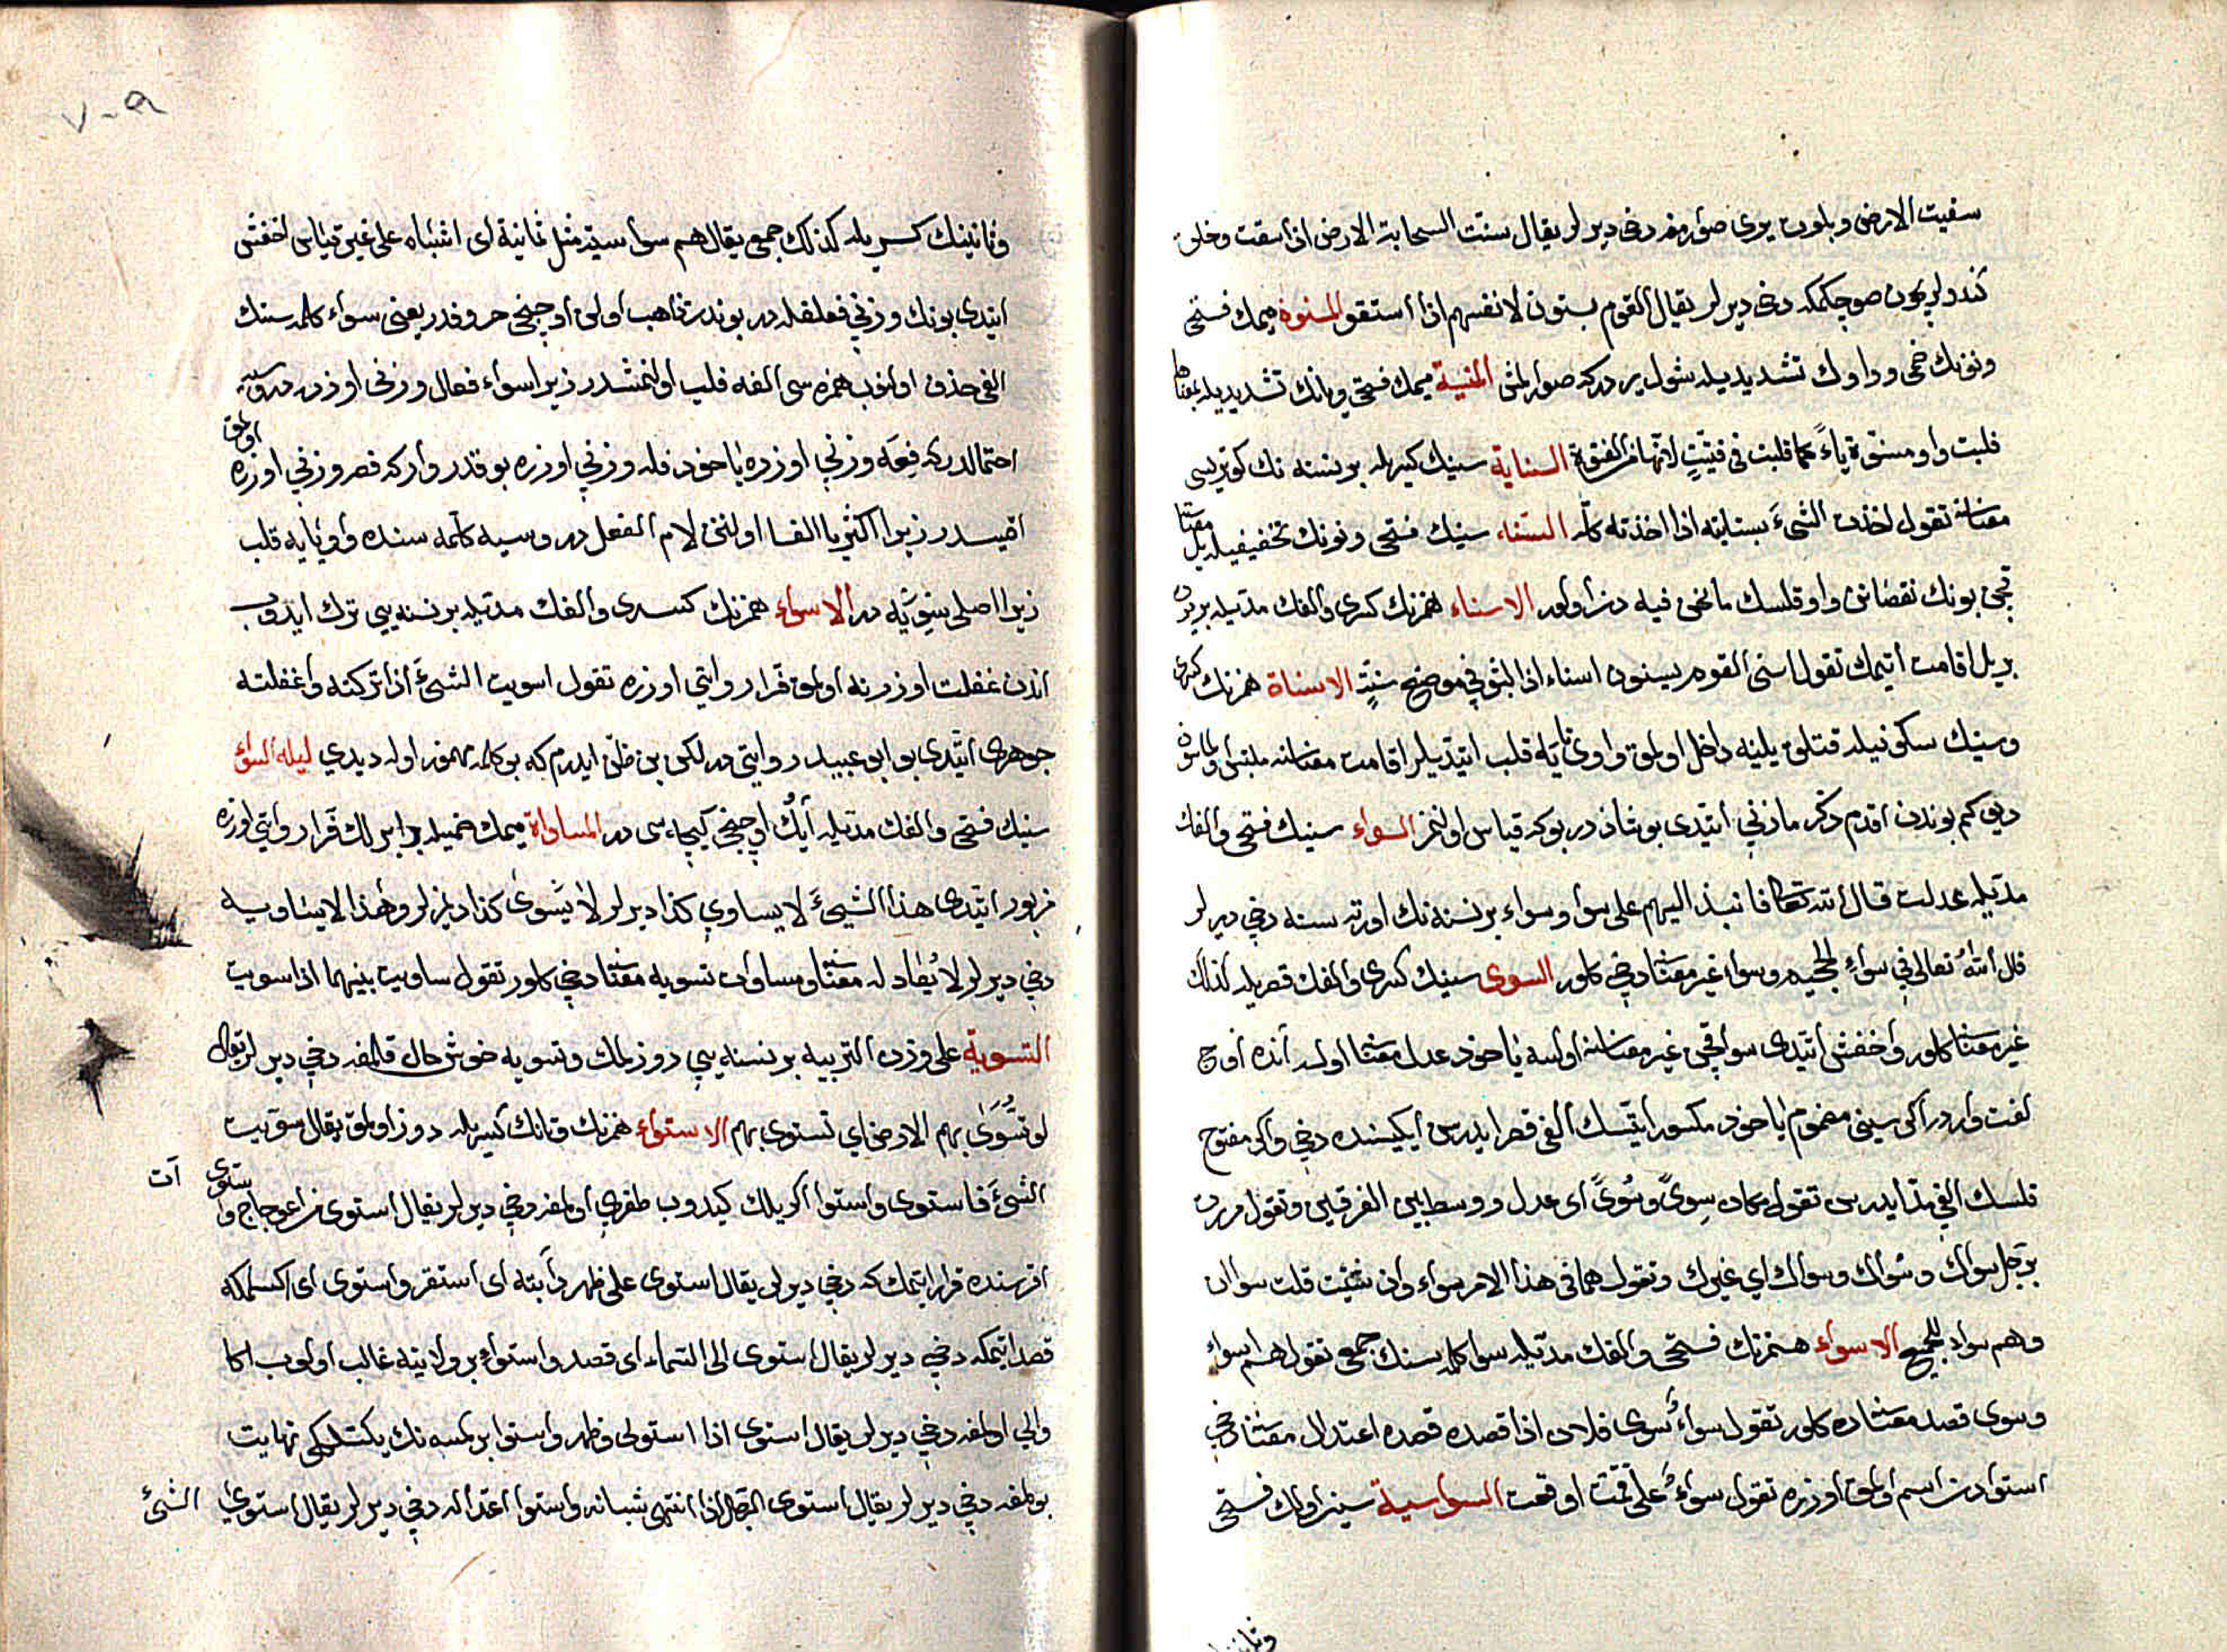 سقيت الارض وبلوت يرى صوارمغه دخى ديرلر يقال سنت السحابة الارض اذا سقت وخلق
كندولريچون صو چكمكه دخى ديرلر يقال القوم يسنون لانفسهم اذا استقو المسنوة ميمك فتحى
ونونك ضمى وواوك تشديديله شول يردركه صوارلمش المسنية ميمك فتحى ويانك تشديديله بمعناها
قلبت واو مسنوة ياءً كما قلبت فى قنية السناية سينك كسريله بر نسنه نك كوتريسى
معناسنه تقول اخذت الشىءَ بسنايته اذا اخذته كله السناء سينك فتحى ونونك تخفيفيله ييل معنا
قچن بونك نقصانى واو قلسك مانحن فيه دن اولور الاسناء همزنك كسرى والفك مديله بر يرده
بر ييل اقامت ايتمك تقول اسنى القوم يسنون اسناء اذا لبثو فى موضع سنة الاسناة همزنك كسرى
وسينك سكونيله قتلق ييلينه داخل اولمق واوى تايه قلب ايتديلر اقامت معناسنه ملتبس اولماسون
ديو كم بوندن اقدم ذكر مازنى ايتدى بو شاذدر بوكه قياس اولنمز السواء سينك فتحى والفك
مديله عدلت قال الله تعالى فانبذ اليهم على سواء وسواء بر نسنه نك اورته سنه دخى ديرلر
قال الله تعالى فى سواء الجحيم وسواء غير معناسنه دخى كلور السوى سينك كسرى والفك قصريله كذلك
غير معنا كلور واخفش ايتدى سوا قچن غير معناسنه اولسه ياخود عدل معنا اولسه آنده اوچ
لغت واردر اكر سينى مضموم ياخود مكسور ايتسك الفى قصر ايدرسن ايكيسنده دخى واكر مفتوح
قلسك الفى مد ايدرسن تقول مكان سِوىً وسُوىً اى عدل ووسط بين الفرقين وتقول مررت
برجل سواك وسُواك وسواك اى غيرك وتقول هما فى هذا الامر سواء وان شئت قلت سواان
وهم سواء للجميع الاسواء همزنك فتحى والفك مديله سوا كلمه سنك جمعى تقول هم اسواء
وسوى قصد معناده كلور تقول سواءُ سوى فلان اذا قصده قصده اعتدال معنا دخى
استوادن اسم اولمق اوزره تقول سواءُ على قمت او قعدت السواسية سينر اولك فتحى
وثانينك
٧٠٩
وثانينك كسريله كذلك جمع يقال هم سواسية مثل ثمانية اى اشباه على غير قياس اخفش
ايتدى بونك وزنى فعلفله در بوندن ذاهب اولن اوچنجى حروفدر يعنى سواء كلمه سنك
الفى حذف اولنوب همزه سى الفه قلب اولنمشدر زيرا سواء فعال وزنى اوزره در وسيه
احتمالدركه فعه وزنى اوزره ياخود فله وزنى اوزره بو قدر واركه فعه وزنى اوزره اولمق
اقيسدر زيرا اكثريا القا اولنن لام الفعل در وسيه كلمه سنده واو يايه قلب
زيرا اصلى سِوْيَه در الاسواء همزنك كسرى والفك مديله بر نسنه يى ترك ايدوب
اندن غفلت اوزرنه اولمق فرّا روايتى اوزره تقول اسويت الشىءَ اذا تركته واغفلته
جوهرى ايتدى بو ابو عبيد روايتى در لكن بن ظن ايدرم كه بو كلمه مهموز اوله ديدى ليلة السواء
سينك فتحى والفك مديله آيك اون اوچنجى كيجه سى در المساواة ميمك ضميله برابرلك فرّا روايتى اوزره
مزبور ايتدى هذا الشىءَ لا يساوى كذا ديرلر لا يَسْوى كذا ديمزلر وهذا لا يساويه
دخى ديرلر لا يُعادله معنا ومساوات تسويه معنا دخى كلور تقول ساويت بينهما اذا سويت
التسوية على وزن التربيه بر نسنه يى دوزلمك وتسويه خوش حال قلمغه دخى ديرلر يقال
لو تسوى بهم الارض اى تستوى بهم الاستواء همزنك وتانك كسريله دوز اولمق يقال سويت
الشىءَ فاستوى واستوا اكريلك كيدوب طغرى اولمغه دخى ديرلر يقال استوى من اعوجاج واستوى آت
اقرسنده قرار ايتمك كه دخى ديرلر يقال استوى على ظهر دابته اى استقر واستوى اى
قصد ايتمكه دخى ديرلر يقال استوى الى السماء اى قصد واستواء بر ولايته غالب اولوب اكا
والى اولمغه دخى ديرلر يقال استوى اذا استولى وظهر واستوا بر كمسه نك يكتلكى نهايت
بولمغه دخى ديرلر يقال استوى الرجل اذا انتهى شبابه واستوا اعتداله دخى ديرلر يقال استوى الشىءُ